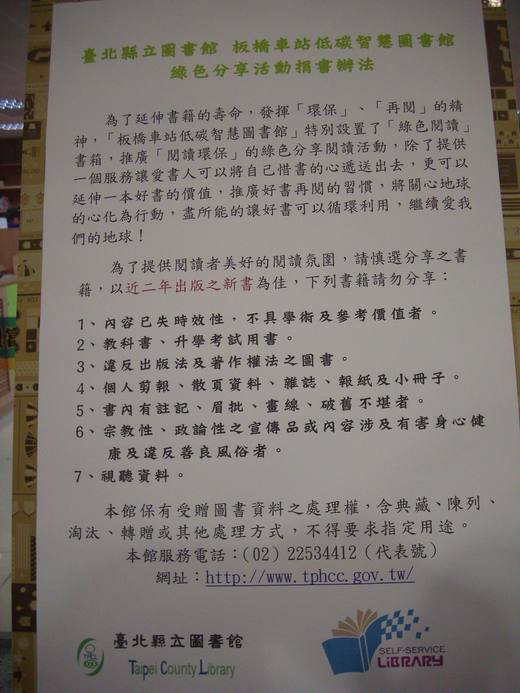 臺北縣立圖書館 板橋車站低碳智慧圖書館
綠色分享活動捐書辦法
為了延伸書籍的壽命，發揮「環保」、「再閱」的精
神，「板橋車站低碳智慧圖書館」特別設置了「綠色閱讀」
書箱，推廣「閱讀環保」的綠色分享閱讀活動，除了提供
一個服務讓愛書人可以將自己惜書的心遞送出去，更可以
延伸一本好書的價值，推廣好書再閱的習慣，將關心地球
的心化為行動，盡所能的讓好書可以循環利用，繼續愛我
們的地球！
為了提供閱讀者美好的閱讀氛圍，請慎選分享之書
籍，以近二年出版之新書為佳，下列書籍請勿分享：
1、內容已失時效性，不具學術及參考價值者。
2、教科書、升學考試用書。
3、違反出版法及著作權法之圖書。
4、個人剪報、散頁資料、雜誌、報紙及小冊子。
5、書內有註記、眉批、畫線、破舊不堪者。
6、宗教性、政論性之宣傳品或內容涉及有害身心健
康及違反善良風俗者。
7、視聽資料。
本館保有受贈圖書資料之處理權，含典藏、陳列、
淘汰、轉贈或其他處理方式，不得要求指定用途。
本館服務電話：(02) 22534412 (代表號)
網址：http://www.tphcc.gov.tw/
臺北縣立圖書館
Taipei County Library
SELF-SERVICE
LIBRARY